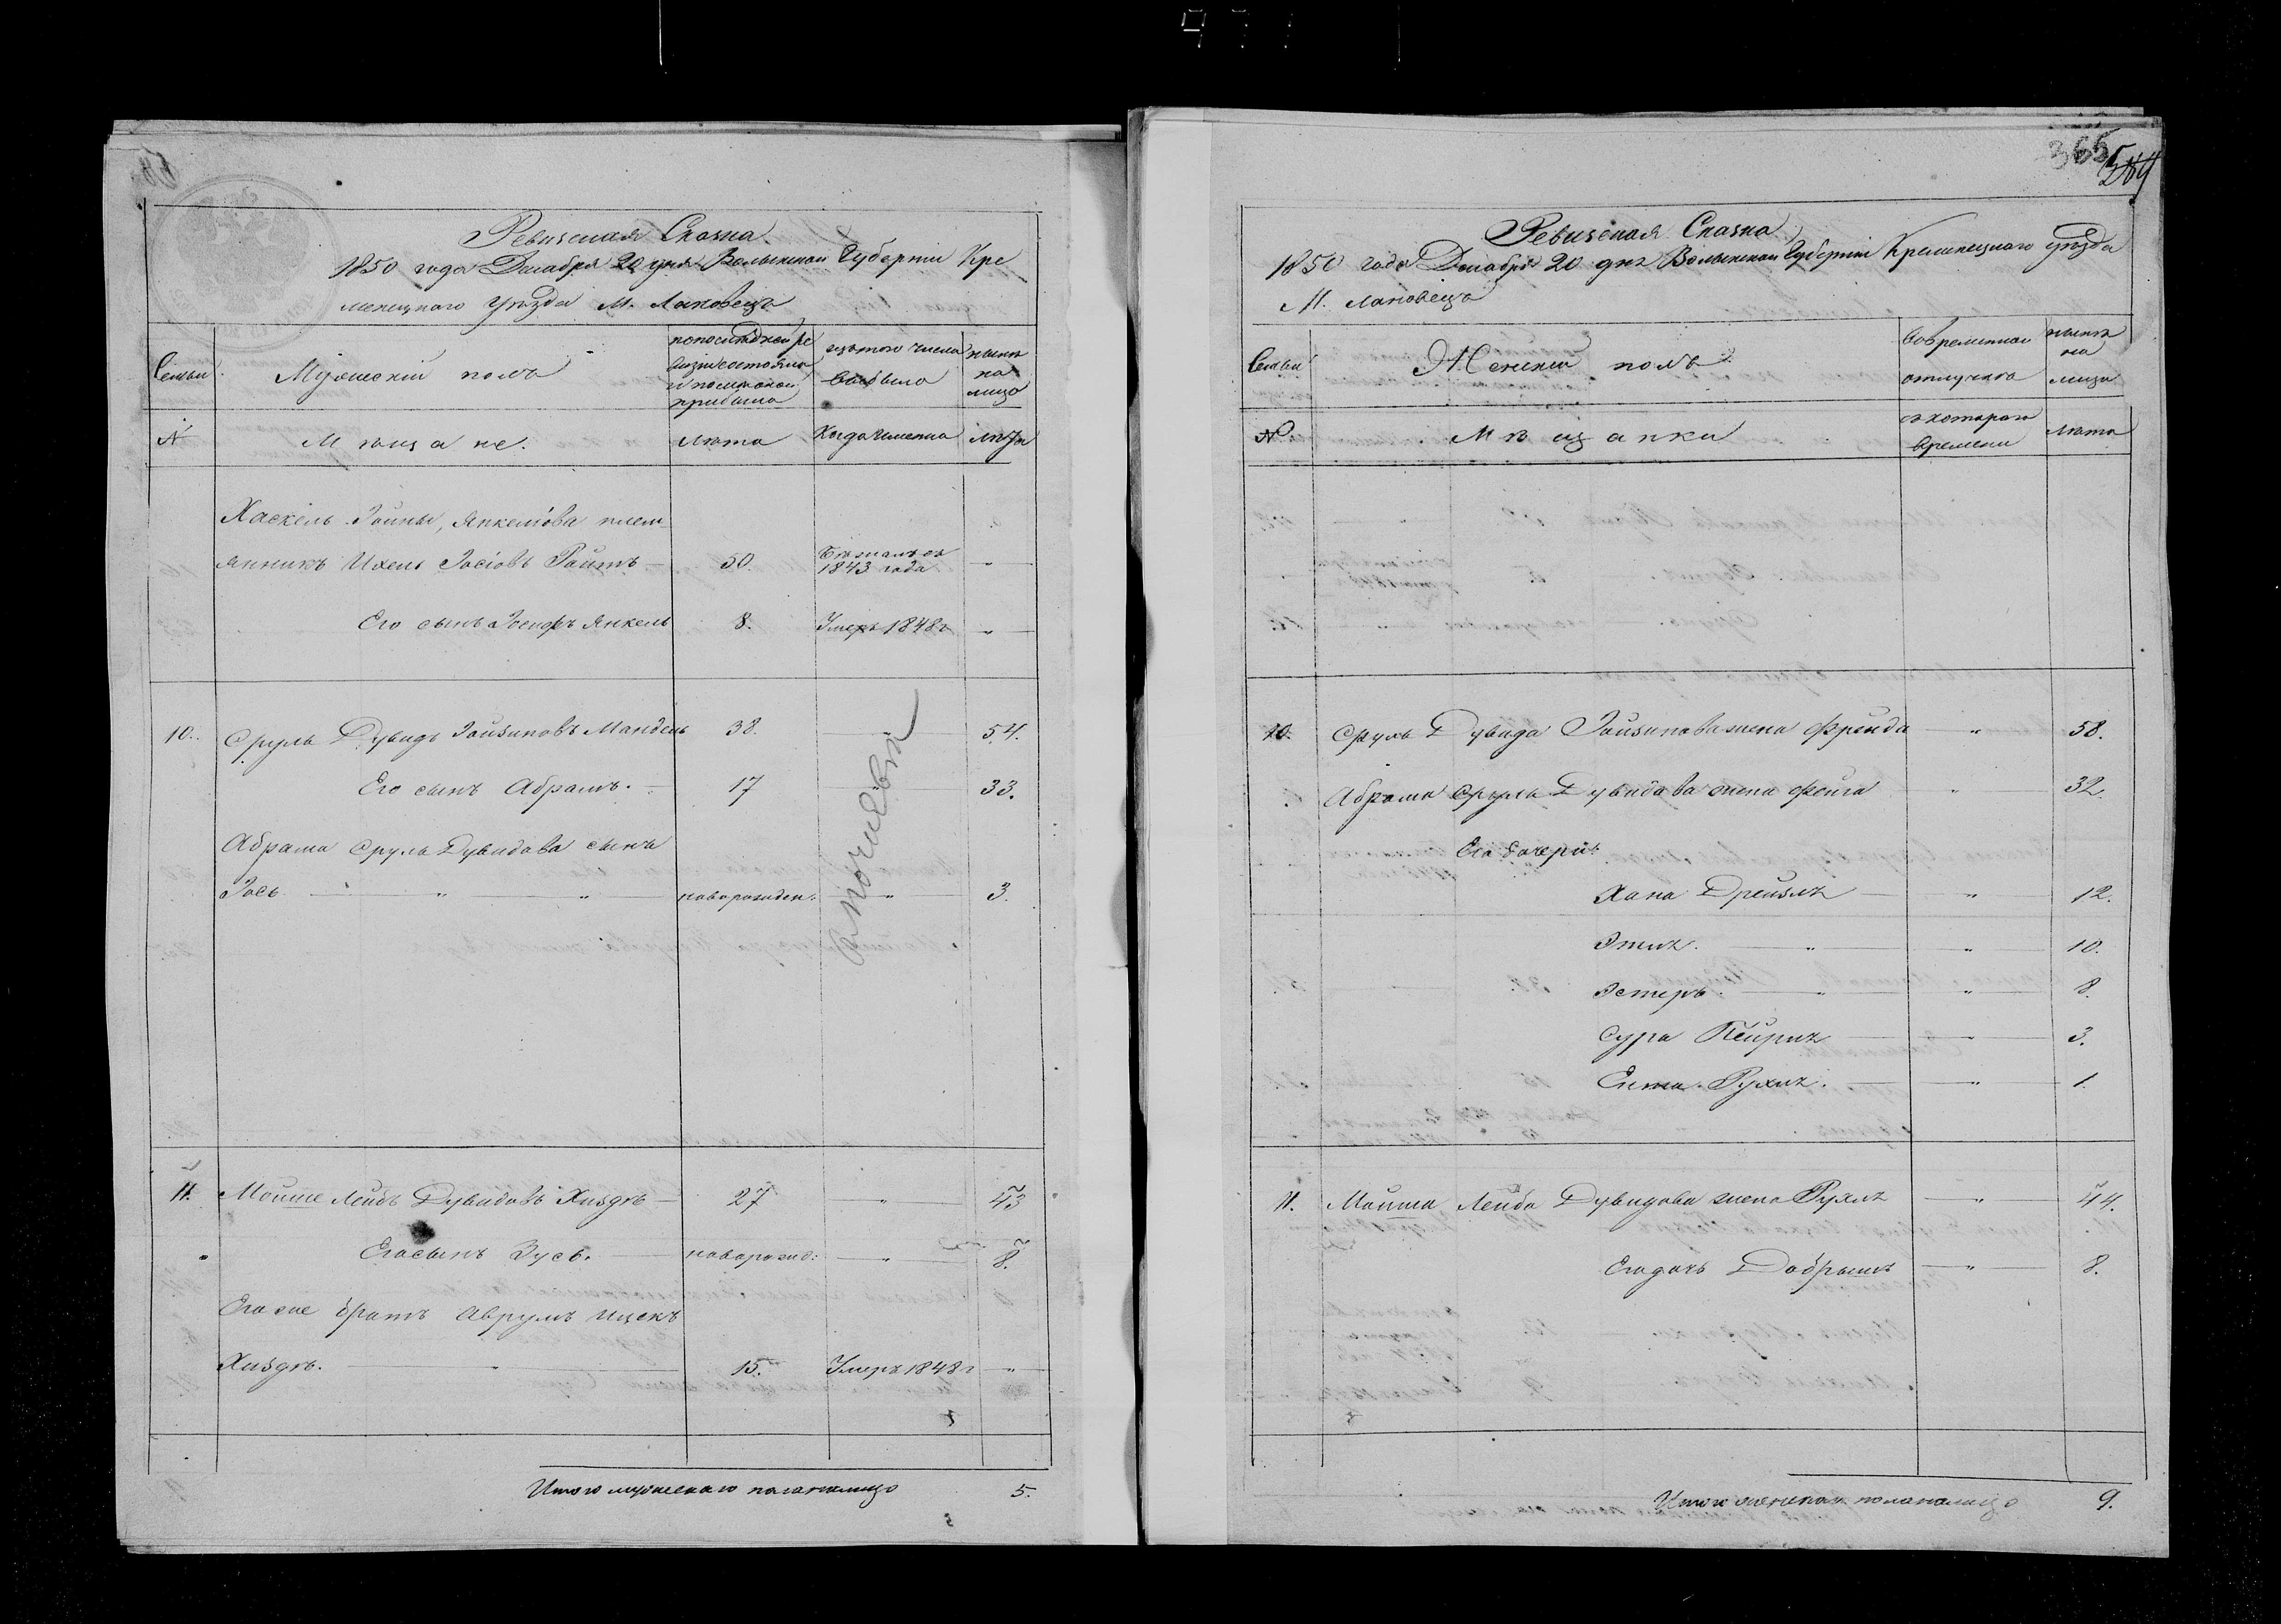 Ревизская Сказка.
1850 года Декабря 20 дня Волынской Губернии Кре
менецкаго Уезда М. Лановецъ
Семьи
Мужескій полъ
по последней ре
визіи состояло
и после оной
прибыло
изъ того числа
выбыло
ныне
на
лицо
№
Мещане.
Лета
Когда именно
Лета
Хаскель Іойны, Янкеліова плем
янникъ Ихель Іосіовъ Ройтъ
50.
Бежалъ съ
1843 года
"
Его сынъ Іосифъ Янкель
8.
Умеръ 1848 г
"
10.
Сруль Дувидъ Іойзиповъ Мандель
38.
"
54.
Его сынъ Абрамъ.
17
"
33.
Абрама Сруль Дувидова сынъ
Іось
"
"
новорожден:
"
3.
11.
Мойше Лейбъ Дувидовъ Хиздръ
27
"
43
Его сынъ Зусь.
новорожд:
"
8.
Его же братъ Аврумъ Ицекъ
Хиздръ.
"
15.
Умеръ 1848 г
"
Итого мужескаго пола налицо
5.
365
Ревизская Сказка
1850 года Декабря 20 дня Волынской Губерніи Кременецкаго уезда
М. Лановецъ
Семьи
Женскій полъ
Во временной
отлучке
ныне
на
лицо
№
Мещанки
съ котораго
времени
Лета
10.
Сруль Дувида Іойзипова жена Фрейда
"
58.
Абрама Сруль Дувидова жена Фейга
"
32.
Его дочери:
Хана Дрейзля
"
12.
Этля.
"
"
10.
Эстеръ
"
"
8.
Сура Пейрля
"
3.
Ента Рухля.
"
1.
11.
Мойша Лейба Дувидова жена Рухля
"
44.
Его дочь Добрышъ
"
8.
Итого женскаго пола налицо
9.